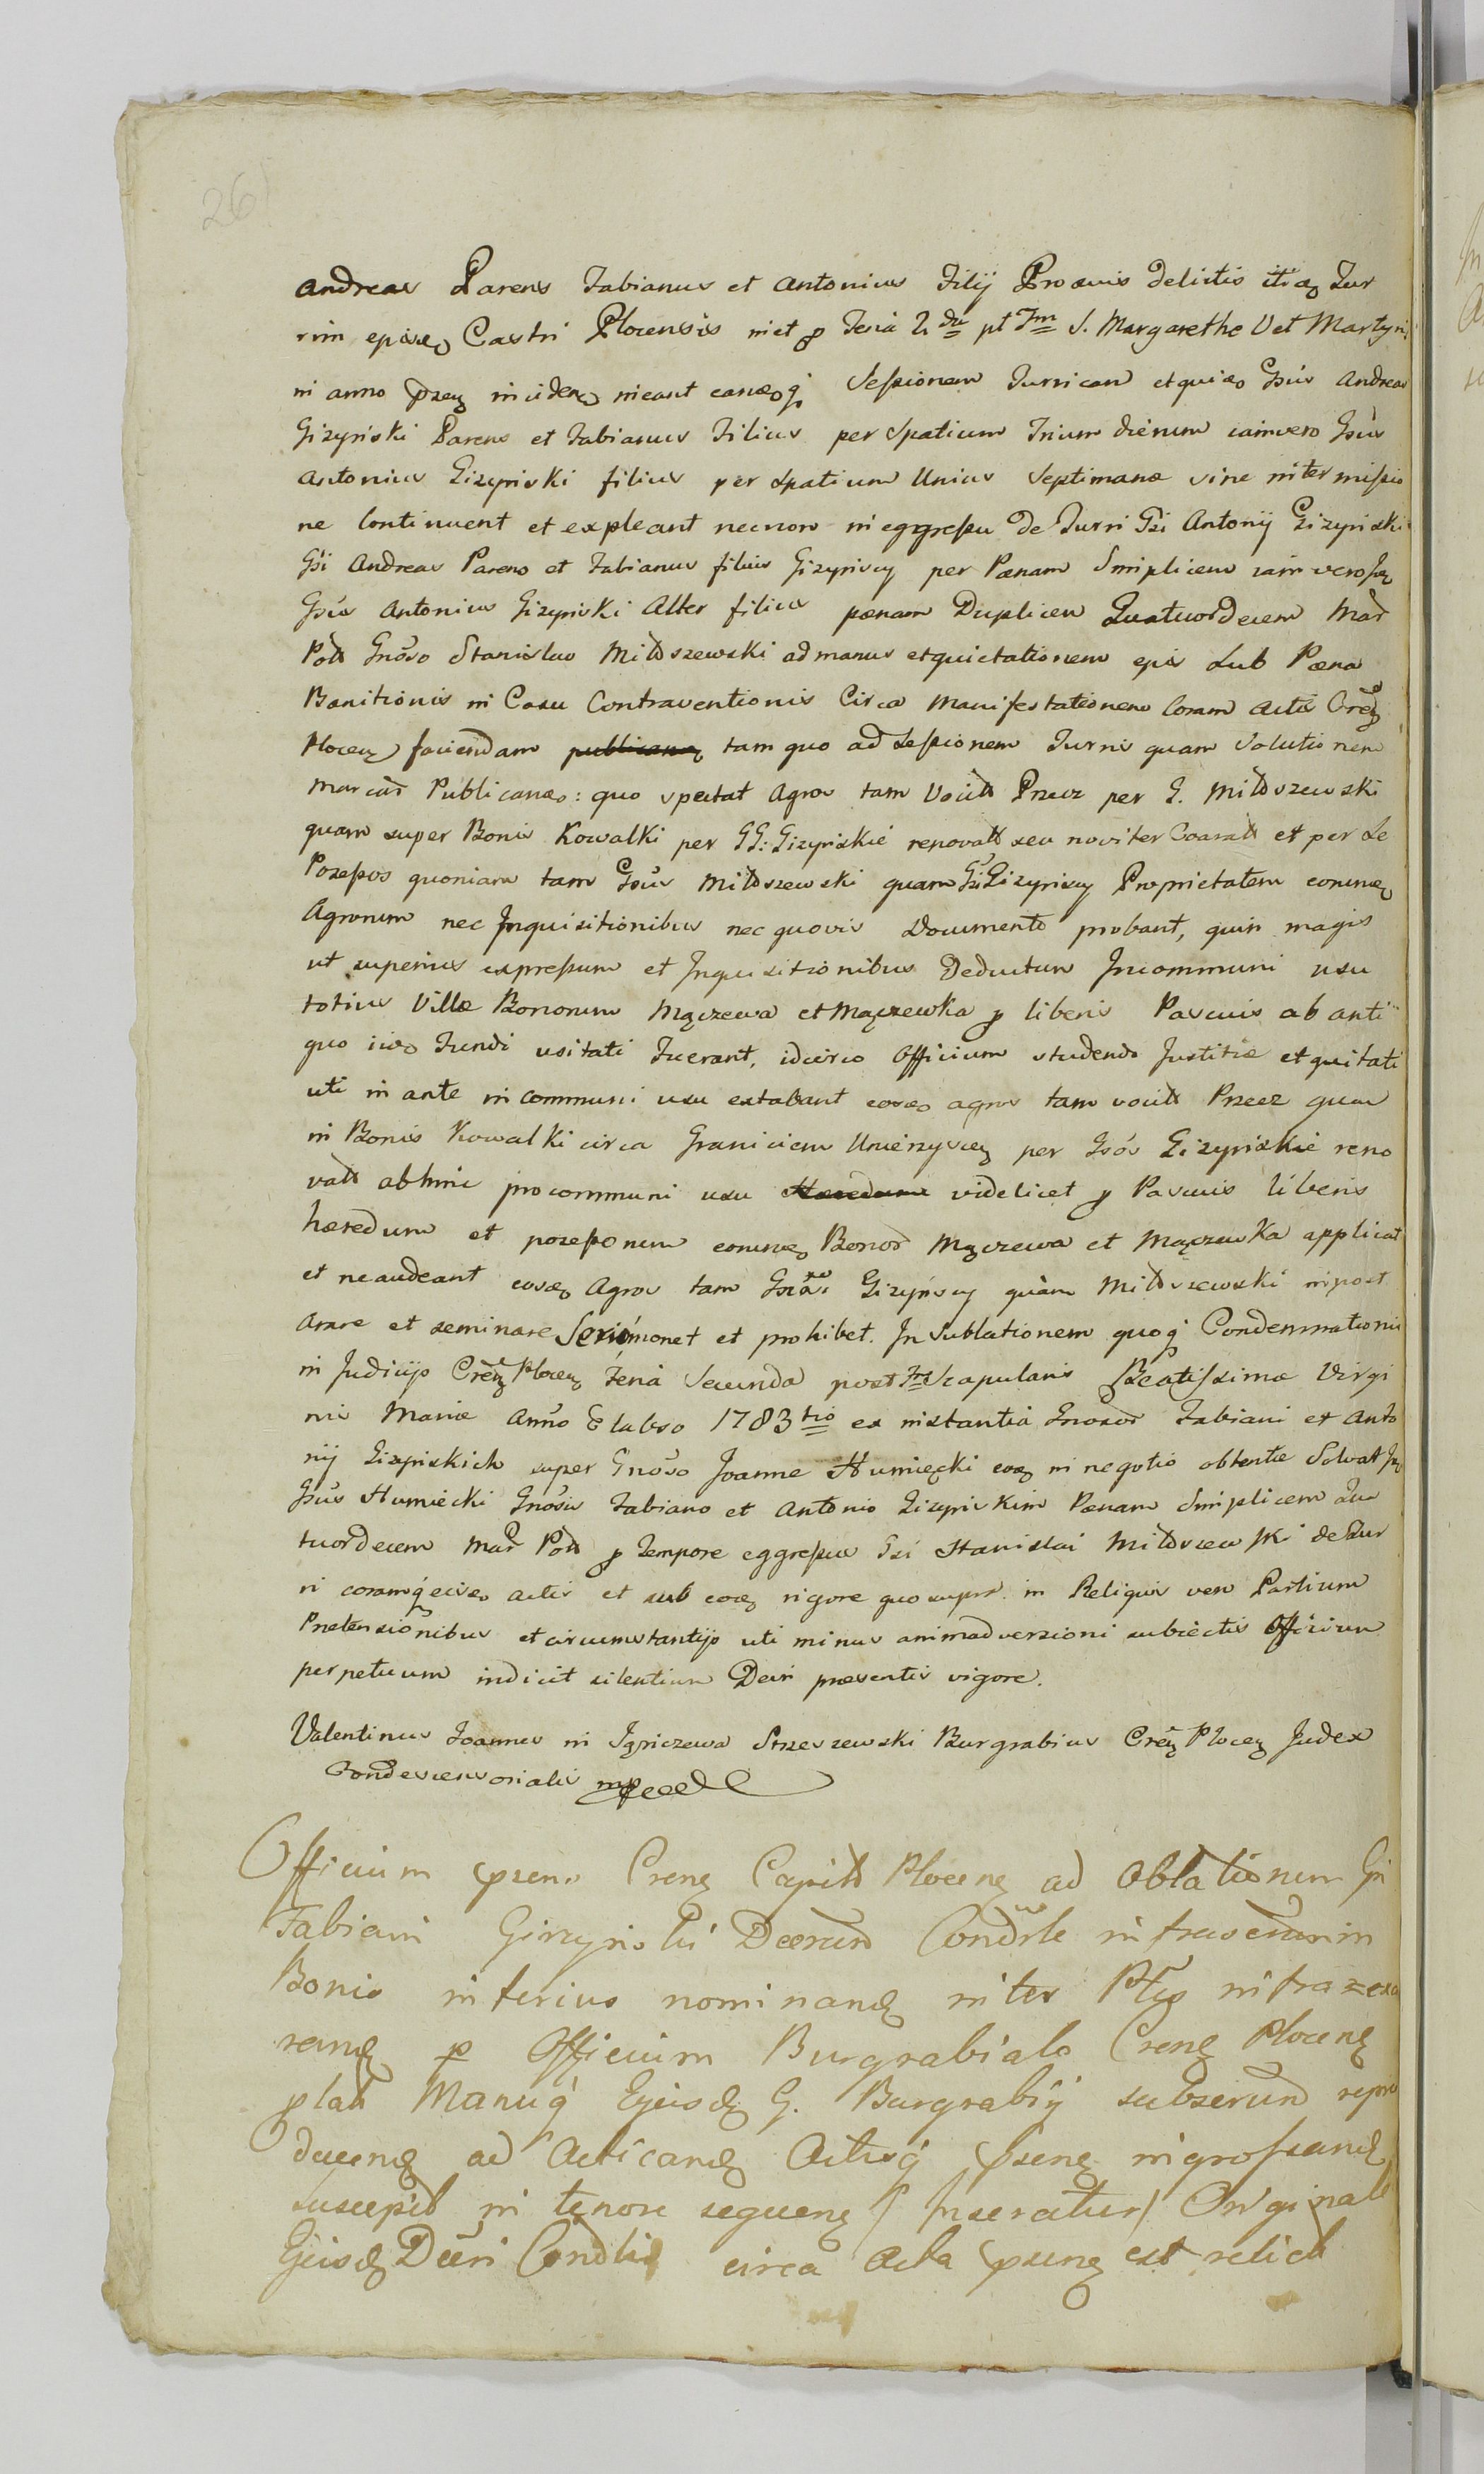 26
Andreas Parens Fabianus et Antonius Filij Pro ausis delictis itidem Tur
rim episdem Castri Plocensis niet p Feria 2da pt Fm S. Margarethe V et Martyri
ni anno praeń incidente nieant eandemq Sessionem Turricam et quidem Gsus Andreas
Gizynski Parens et Fabianus Filius per Spatium Trium dierum iamvero Gsus
Antonius Gizynski filius per Spatium Unius Septimanæ sine intermissio
ne Continuent et expleant necnon in eggressu de Turri Gsi Antonij Gizynski
Gsi Andreas Parens et Fabianus filius Gizynscy per Pænam Simplicem iam vero
Gsus Antonius Gizynski Alter filius pænam Duplicem Quatuordecem Mar
Poll Gnoso Stanislao Mittszewski ad manus et quietationem epis Sub Pæna
Banitionis in Casu Contraventionis Circa Manifestationem Coram actis Creń
Ploceń faciendam tam quo ad Sessionem Turris quam Solutionem
Marcar Publicandam: quo spectat Agros tam Vocitt Przecz per G. Mittszewski
quam super Bonis Kowalki per GG: Gizynskie renovatt seu noviter Coaratt et per Se
Possessos quoniam tam Gsus Mittszewski quam Gsi Gizynscy Proprietatem eorundem
Agrorum nec Inquisitionibus nec quovis Documento probant, quin magis
ut superius expressum et Inquisitionibus Deductum In communi usu
totius Villæ Bonorum Mączewa et Mączewka p liberis Pascuis ab anti
quo iidem Fundi usitati Fuerant, idcirco Officium studendo Justitiæ et quitati
uti in ante in communi usu extabant eosdem agros tam vocitt Przecz quam
in Bonis Kowalki circa Graniciem Unierzysceń per Gsos Gizynskie reno
vatt abhinc pro communi usu videlicet p Pascuis liberis
hæredum et possessorum eorundem Bonor Mączewa et Mączewka applicat
et ne audeant eosdem Agros tam Gizynscy quam Mittszewski inpost
Arare et seminare Serio monet et prohibet. In Sublationem quoq Condemnationis
in Judicijo Creń Ploceń Feria Secunda post Fm Scapularis Beatissimæ Virgi
nis Mariæ Anno Elabso 1783tio ex instantia Gnosor Fabiani et Anto
nij Gizynskich super Gnoso Joanne Humięcki eodem in negotio obtentæ Solvat
Gsus Humiecki Gnosis Fabiano et Antonio Gizynskim Pænam Simplicem Qua
tuordecem Mar Poll p Tempore eggressus Gsi Stanislai Mittszewski de Tur
ri coramq eisdem actis et sub eodem rigore quo supra in Reliquis vero Partium
Prætensionibus et circumstantijs uti minus animadversioni subiectis Officium
perpetuum indicit silentium Decri præsentis vigore.
Valentinus Joannes in Strzeszewski Burgrabius Creń Ploceń Judex
Condescensorialis mp
Officium præns Creń Capitt Ploceń ad Oblationem Gsi
Fabiani Gizynski Decretum Condsle infrascrum in
Bonis inferius nominand inter Ptes infra
rand p Officium Burgrabiale Creń Ploceń
platt Manuq Ejusd G. Burgrabij subscrum repro
ducend ad Acticand Actisq præsene ingrossand
suscepit in tenore sequene ( Inseratur) Originale
Ejusd Decri Condlis circa Acta præsene est relict